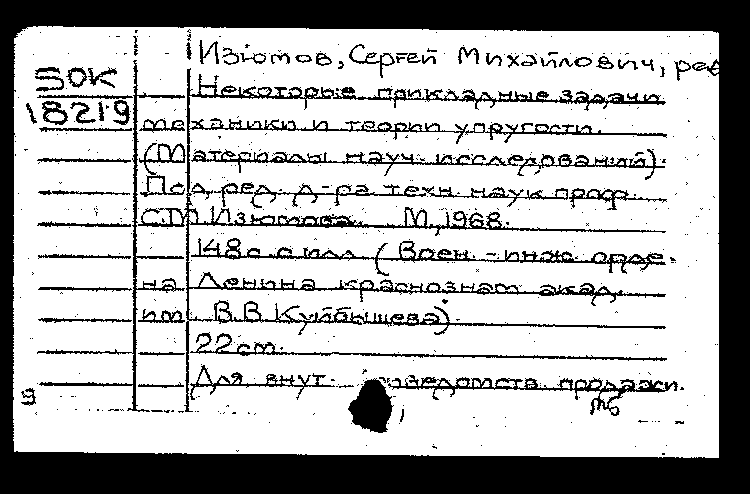 Изюмов, Сергей Михайлович, ред
SOK
18219
Некоторые прикладные задачи
механики и теории упругости.
(Материалы науч. исследований).
Под ред. д-ра техн. наук проф.
С.М. Изюмова. М., 1968.
148 с. с илл. (Воен.-инж. орде-
на Ленина краснознам. акад.
им. В.В. Куйбышева).
22 cm.
Для внут. ведомств. продажи.
9